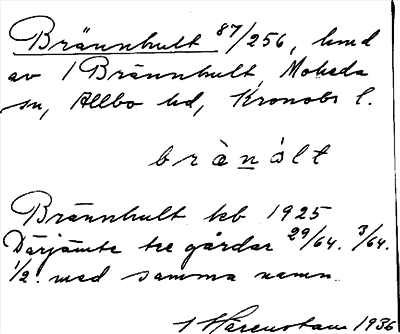 Brännhult 87/256, hmd
av 1 Brännhult, Moheda
sn, Allbo hd, Kronobs l.
brànólt
Brännhult kb 1925
Därjämte tre gårdar 29/64. 3/64.
1/2. med samma namn.
1936